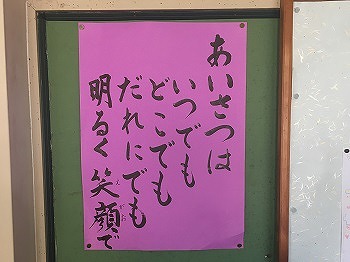 あいさつは
いつでも
どこでも
だれにでも
明るく笑顔で
えがお